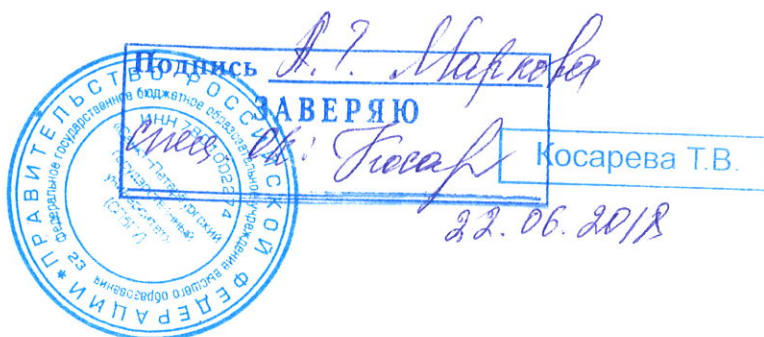 Подпись А.Г. Маркова
ЗАВЕРЯЮ
спец ОК: Косар
Косарева Т.В.
22.06.2018
ПРАВИТЕЛЬСТВО РОССИЙСКОЙ ФЕДЕРАЦИИ *
Федеральное государственное бюджетное образовательное учреждение высшего образования
23
ИНН
Санкт-Петербургский
государственный
университет
(СПбГУ)